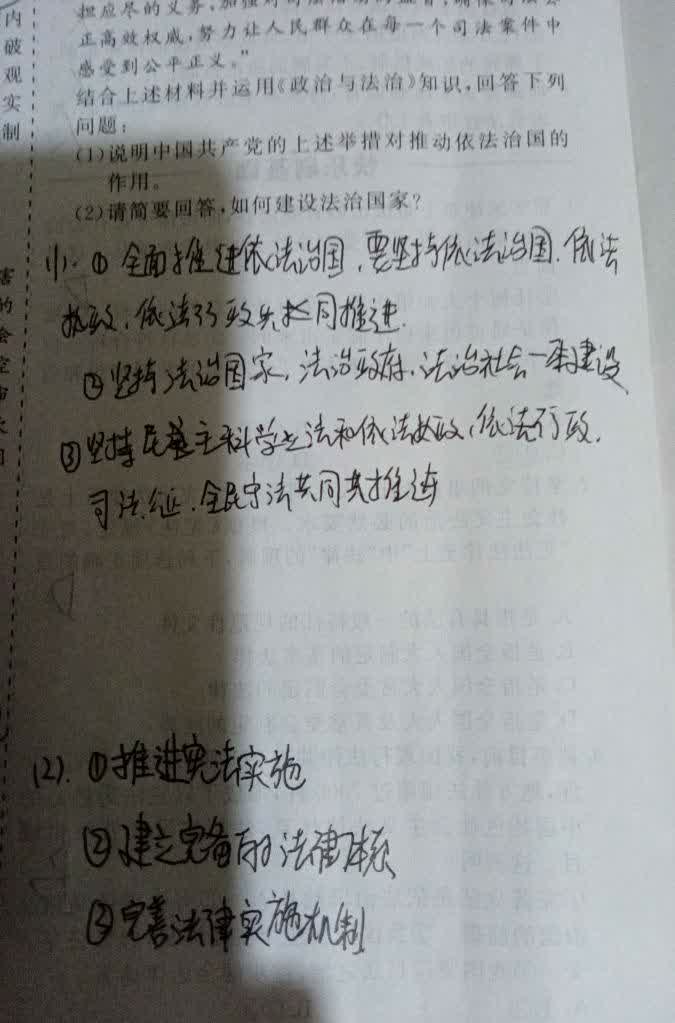 担应尽的义务,加强对司法活动的监督,确保司法公
正高效权威,努力让人民群众在每一个司法案件中
感受到公平正义。”
结合上述材料并运用《政治与法治》知识,回答下列
问题:
(1)说明中国共产党的上述举措对推动依法治国的
作用。
(2)请简要回答,如何建设法治国家?
(1). ① 全面推进依法治国,要坚持依法治国、依法
执政、依法行政共同推进.
②坚持法治国家、法治政府、法治社会一体建设
③坚持民主科学立法和依法执政、依法行政、
司法公正、全民守法共同共推进
(2). ①推进宪法实施
②建立完备的法律体系
③完善法律实施机制
内
破
观
实
制